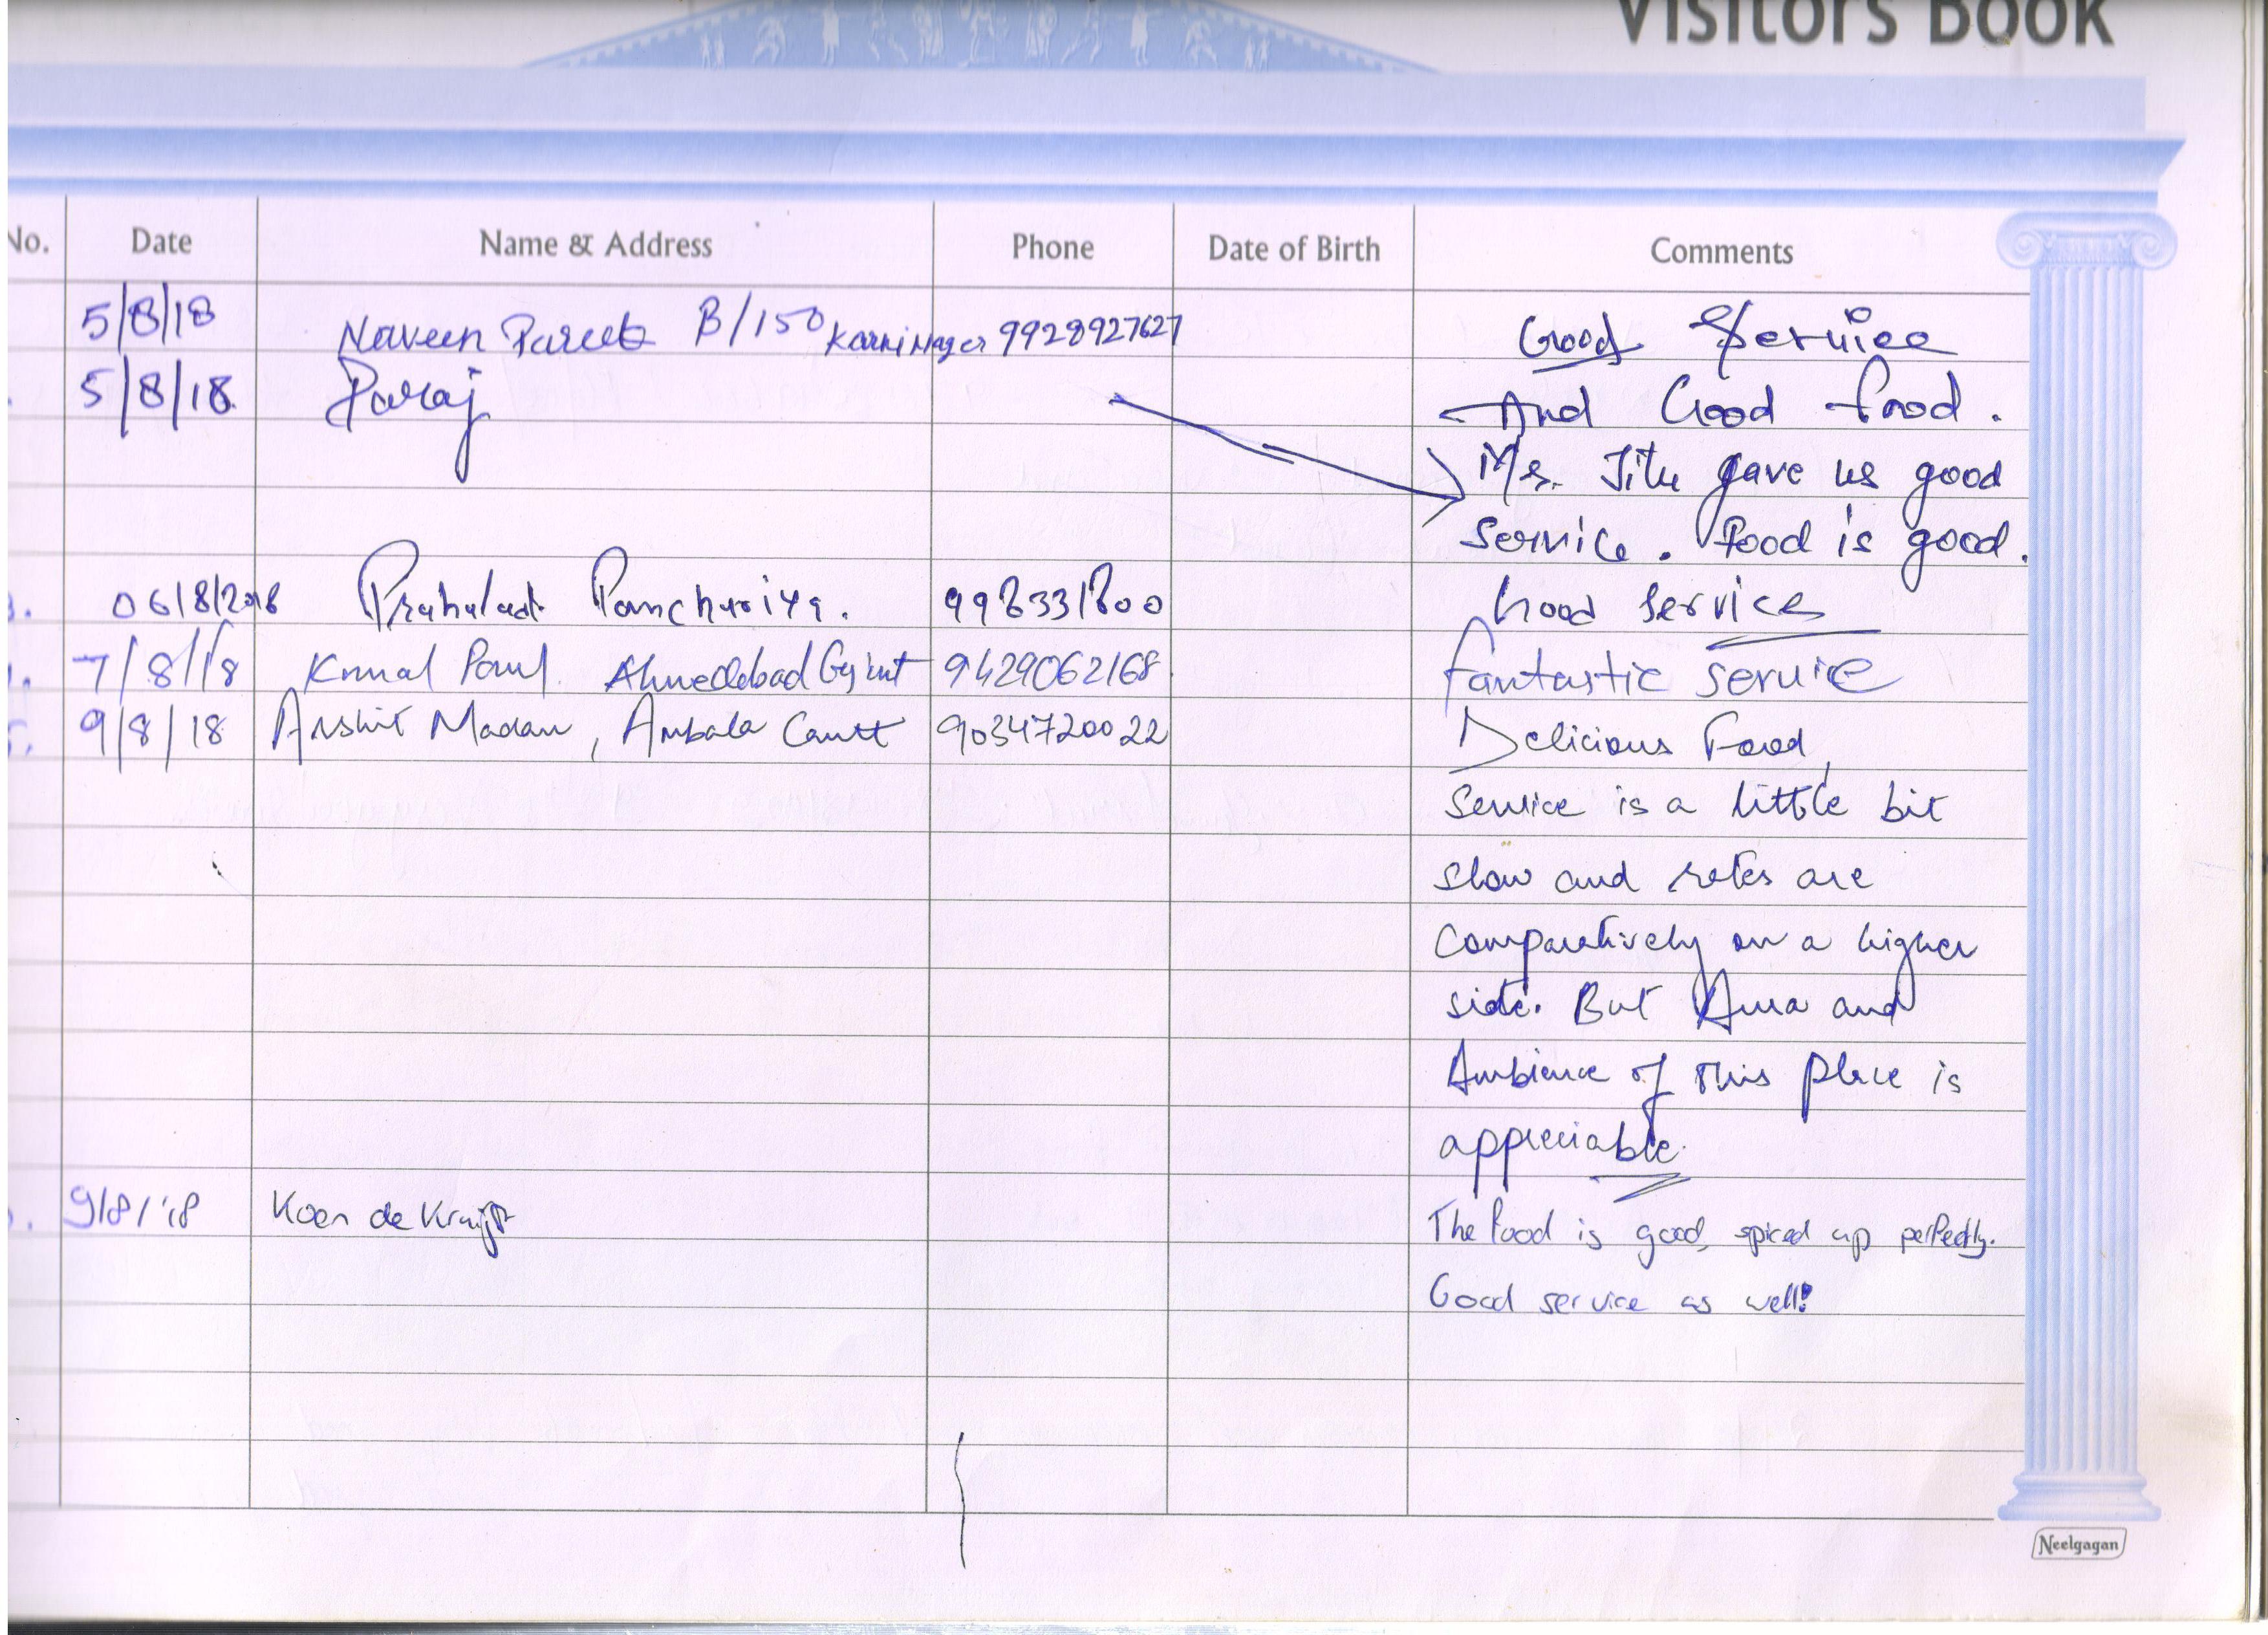 Visitors Book
No. Date Name & Address Phone Date of Birth Comments
5/8/18 Naveen Pareek B/150 Karni Nager 9928927627 Good Service
5/8/18 Paraj And Good food.
Mr. Jitu gave us good
Service. Food is good.
06/8/2018 Prahalad Panchariya. 998331800 Good Service
7/8/18 Kunal Paul Ahmedabad Gujrat 9429062168 fantastic service
9/8/18 Arshit Madan, Ambala Cantt 9034720022 Delicious Food,
Service is a little bit
slow and rates are
comparatively on a higher
side. But Aura and
Ambience of this place is
appreciable.
9/8/'18 Koen de Kruijf The food is good, spiced up perfectly.
Good service as well!
Neelgagan